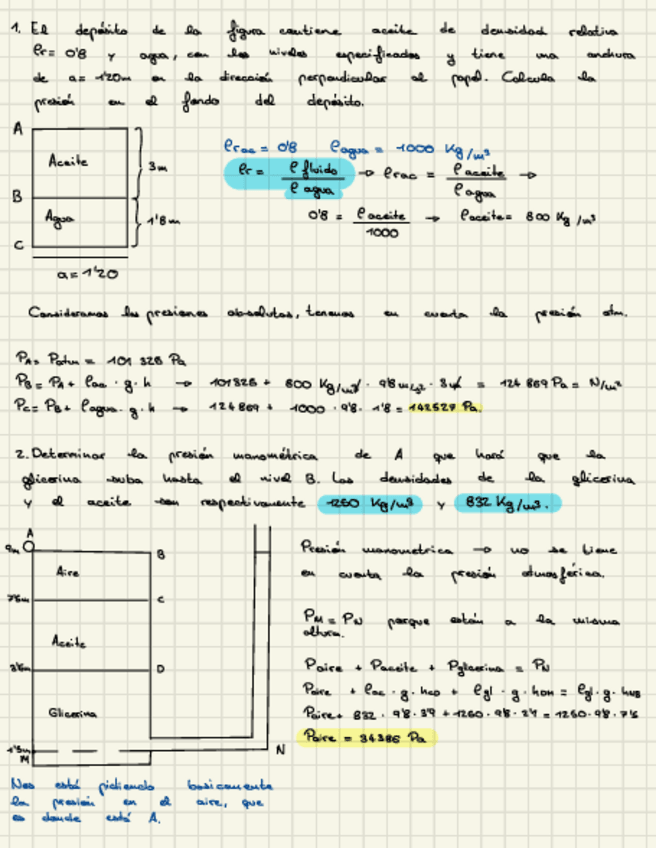 1. El depósito de la figura contiene aceite de densidad relativa
ρr= 0'8 y agua, con los niveles especificados y tiene una anchura
de a= 1'20m en la dirección perpendicular al papel. Calcula la
presión en el fondo del depósito.
A
Aceite
3m
B
Agua
1'8m
C
a= 1'20
ρrac = 0'8 ρagua = 1000 Kg/m³
ρr = ρfluido / ρagua → ρrac = ρaceite / ρagua →
0'8 = ρaceite / 1000 → ρaceite = 800 Kg/m³
Consideramos las presiones absolutas, tenemos en cuenta la presión atm.
PA= Patm = 101 325 Pa
PB= PA + ρac · g · h → 101325 + 800 Kg/m³ · 9'8 m/s² · 3m = 124 869 Pa = N/m²
PC= PB + ρagua · g · h → 124869 + 1000 · 9'8 · 1'8 = 142527 Pa.
2. Determinar la presión manométrica de A que hará que la
glicerina suba hasta el nivel B. Las densidades de la glicerina
y el aceite son respectivamente 1260 Kg/m³ y 832 Kg/m³.
A
B
Aire
C
Aceite
D
Glicerina
M
N
Presión manometrica → no se tiene
en cuenta la presión atmosférica.
PM = PN porque están a la misma
altura.
Paire + Paceite + Pglicerina = PN
Paire + ρac · g · hCD + ρgl · g · hDM = ρgl · g · hNB
Paire + 832 · 9'8 · 3'9 + 1260 · 9'8 · 2'1 = 1260 · 9'8 · 7'5
Paire = 34386 Pa
Nos está pidiendo basicamente
la presion en el aire, que
es donde está A.